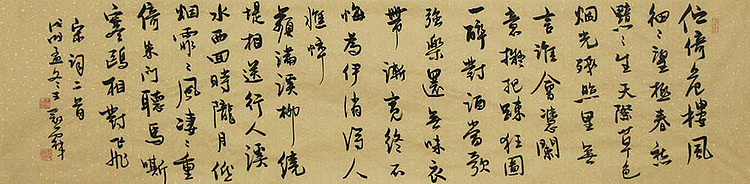 伫倚危樓風
細々望極春愁
黯々生天際草色
烟光殘照里無
言誰會憑闌
意擬把疎狂圖
一醉對酒當歌
強樂還無味衣
帶漸寬終不
悔為伊消得人
憔悴
蘋滿溪柳繞
堤相送行人溪
水西回時隴月低
烟霏々風凄々重
倚朱門聽馬嘶
寒鷗相對飛
宋词二首
孟冬王